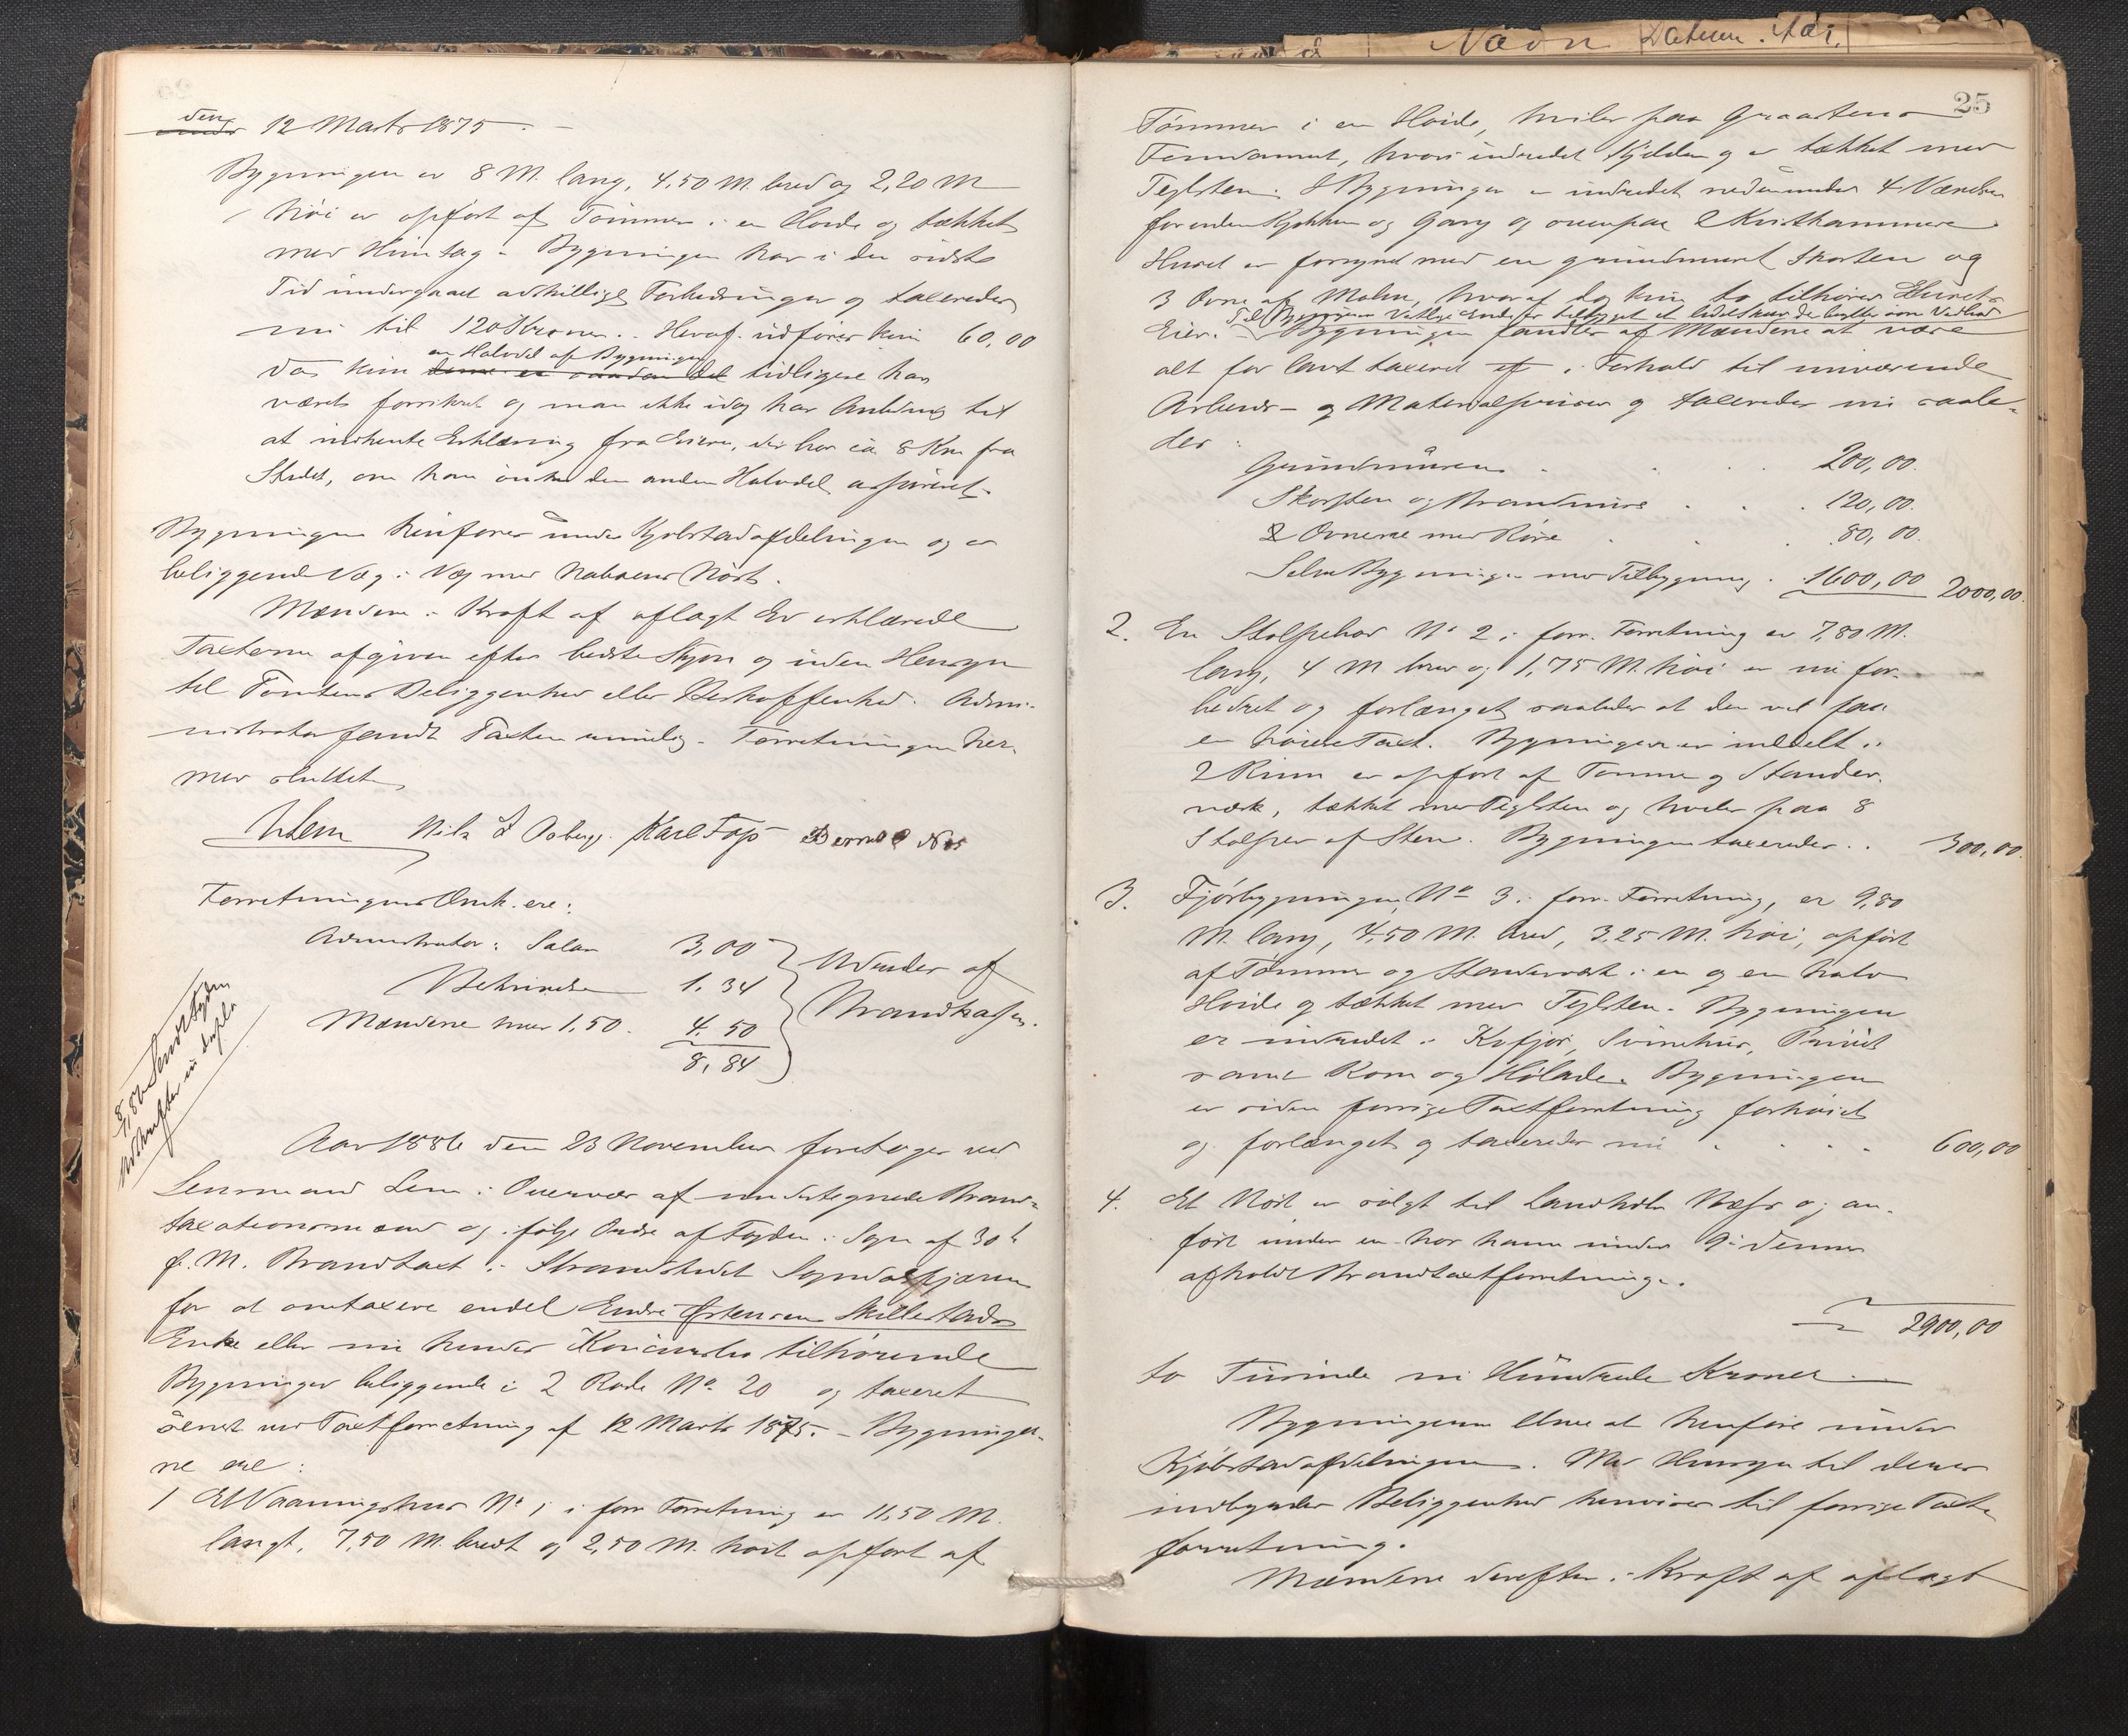 den
12 Marts 1875. –
Bygningen er 8 M. lang, 4,50 M. bred og 2,20 M
høi er opført af Tømmer i en Høide og tækket
med Himtag – Bygningen har i den sidste
Tid undergaaet adskillige Forbedringer og taxeredes
nu til 120 Kroner. Heraf udføres kun 60,00
en Halvdel af Bygningen
da kun tidligere har
været forsikret og man ikke idag har Anledning til
at indhente Erklæring fra Eieren, der bor ca 8 Km fra
Stedet, om han ønsker den anden Halvdel assureret.
Bygningen henføres under Kjøbstadafdelingen og er
beliggende Væg i Væg med Naboens Nøst.
Mændene i Kraft af aflagt Ed erklærede
Taxterne afgivne efter bedste Skjøn og uden Hensyn
til Tomtens Beliggenhed eller Beskaffenhed. Admi-
nistrator fandt Taxten rimelig. Forretningen her-
med sluttet
Lem Nils Karl
Forretningens Omk. ere:
Administrator: Salær 3,00
1,34
Mændene hver 1,50. 4,50
8,84
Udredes af
Brandkassen.
Aar 1886 den 23 November foretoges ved
Lensmand Lem i Overvær af undertegnede Brand-
taxationsmænd og ifølge Ordre af Fogden i Sogn af 30te
f. M. Brandtaxt i Strandstedet Sogndalsfjæren
for at omtaxere endel Endre Skillestads
Enke eller nu hendes tilhørende
Bygninger beliggende i 2 Rode No. 20 og taxeret
senest ved Taxtforretning af 12 Marts 1875. – Bygninger-
ne ere:
1 Et Vaaningshus No 1 i forr. Forretning er 11,50 M.
langt, 7,50 M. bredt og 2,50 M. høit opført af
25
Tømmer i en Høide, hviler paa Graastens
Fundament, hvori indredet Kjelder og er tækket med
Teglsten. I Bygningen er indredet nedenunder 4 Værelser
foruden Kjøkken og Gang og ovenpaa 2 Kvistkammere
Huset er forsynet med en grundmuret Skorsten og
3 Ovne af Malm, hvoraf dog kun to tilhører Husets
Til Bygningens Vestlige Ende er tilbygget et lidet skur der benyttes som Vedhus
Eier. – Bygningen fandtes af Mændene at være
alt for lavt taxeret i Forhold til nuværende
Arbeids- og Materialpriser og taxeredes nu saale-
des:
Grundmuren . . . 200,00.
Skorsten og Brandmure . . . 120,00.
2 Ovnene med Røre . . . 80,00.
Selve Bygningen med Tilbygning . 1600,00 2000,00.
2. En Stolpebod No 2 i forr. Forretning er 7,80 M.
lang, 4 M bred og 1,75 M. høi er nu for-
bedret og forlænget saaledes at den vil faa
en høiere Taxt. Bygningen er inddelt i
2 Rum er opført af Tømmer og Stander-
værk, tækket med Teglsten og hviler paa 8
Stolper af Sten. Bygningen taxeredes . . 300,00.
3. Fjøsbygningen, No 3 i forr. Forretning, er 9,80
M. lang, 4,50 M. bred, 3,25 M. høi, opført
af Tømmer og Standerværk i en og en halv
Høide og tækket med Teglsten. Bygningen
er indredet i Kofjøs, Svinehus, Privet
samt Korn og Hølade. Bygningen
er siden forrige Taxtforretning forhøiet
og forlænget og taxeredes nu . . . . 600,00
4. Et Nøst er solgt til Landhdlr Næss og an-
ført under en hos ham under 9de dennes
afholdt Brandtaxtforretning.
2900,00
to Tusinde ni Hundrede Kroner
Bygningerne bliver at henføre under
Kjøbstadafdelingen. Med Hensyn til deres
indbyrdes Beliggenhed henvises til forrige Taxt-
forretning.
Mændene derefter i Kraft af aflagt